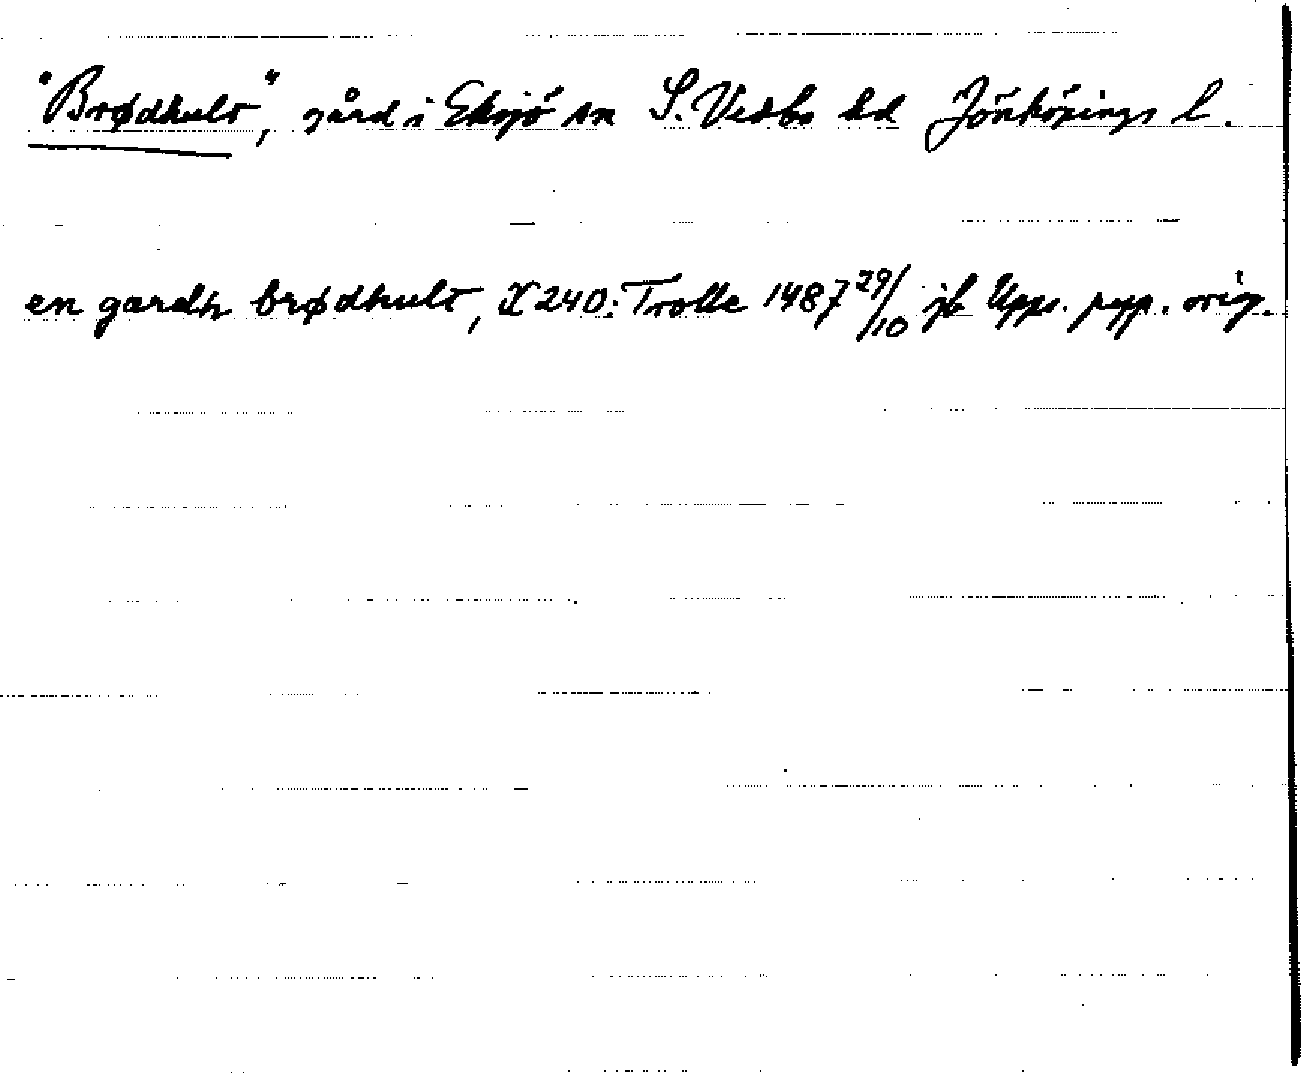 "Brødhult", gård i Eksjö sn S. Vedbo hd Jönköpings l.
en gardh brødhult, X 240: Trolle 1487 29/10 jb Upps. papp. orig.